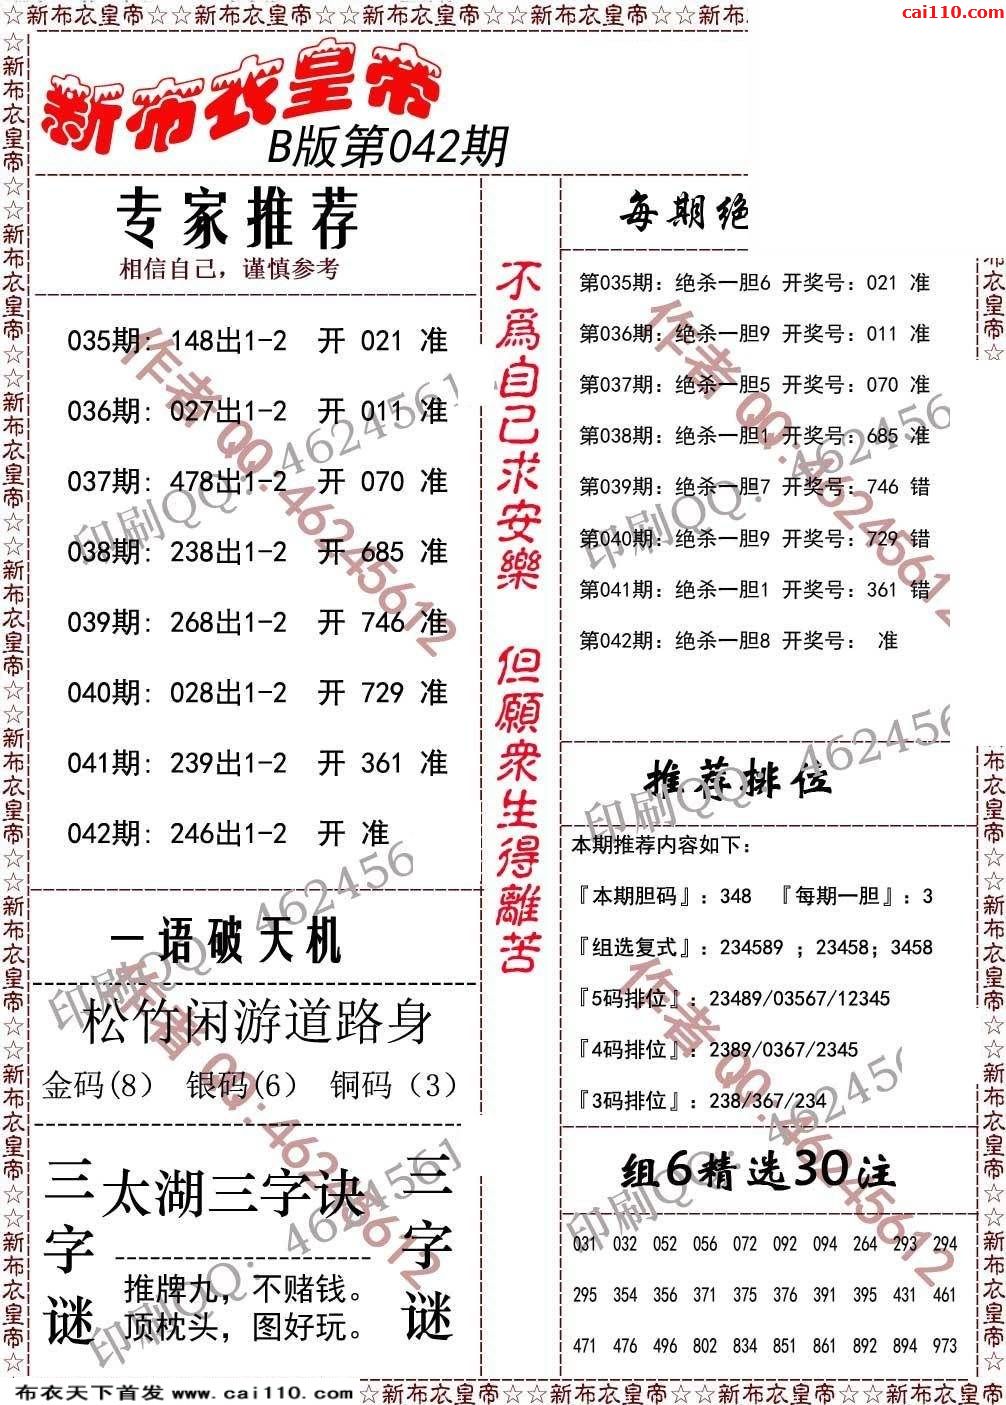 ☆新布衣皇帝☆☆新布衣皇帝☆☆新布衣皇帝☆☆新布衣皇帝☆☆新布
cai110.com
新布衣皇帝
B版第042期
专家推荐
相信自己，谨慎参考
035期: 148出1-2 开 021 准
036期: 027出1-2 开 011 准
037期: 478出1-2 开 070 准
038期: 238出1-2 开 685 准
039期: 268出1-2 开 746 准
040期: 028出1-2 开 729 准
041期: 239出1-2 开 361 准
042期: 246出1-2 开 准
一语破天机
松竹闲游道路身
金码(8) 银码(6) 铜码（3）
三字谜
太湖三字诀
推牌九，不赌钱。
顶枕头，图好玩。
三字谜
不爲自己求安樂 但願衆生得離苦
每期绝
第035期: 绝杀一胆6 开奖号: 021 准
第036期: 绝杀一胆9 开奖号: 011 准
第037期: 绝杀一胆5 开奖号: 070 准
第038期: 绝杀一胆1 开奖号: 685 准
第039期: 绝杀一胆7 开奖号: 746 错
第040期: 绝杀一胆9 开奖号: 729 错
第041期: 绝杀一胆1 开奖号: 361 错
第042期: 绝杀一胆8 开奖号: 准
推荐排位
本期推荐内容如下:
『本期胆码』: 348 『每期一胆』: 3
『组选复式』: 234589 ; 23458; 3458
『5码排位』: 23489/03567/12345
『4码排位』: 2389/0367/2345
『3码排位』: 238/367/234
组6精选30注
031 032 052 056 072 092 094 264 293 294
295 354 356 371 375 376 391 395 431 461
471 476 496 802 834 851 861 892 894 973
作者 QQ: 46245612
印刷QQ: 4624561
布衣天下首发 www.cai110.com
☆新布衣皇帝☆☆新布衣皇帝☆☆新布衣皇帝☆☆新布衣皇帝☆